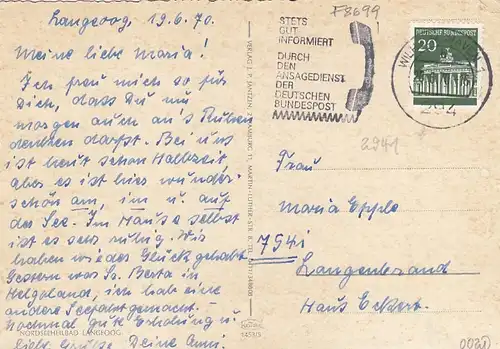 F8699
Langeoog, 19.6.70.
Meine liebe Maria!
Ich freu mich so für
Dich, dass Du nu
morgen auch an's Ruhen
denken darfst. Bei uns
ist heut schon Halbzeit
aber es ist hier wunder-
schön am, im u. auf
der See. Im Hause selbst
ist es sehr ruhig. Wir
haben wieder Glück gehabt.
Gestern war Sr. Berta in
Helgoland, ich hab eine
andere Seefahrt gemacht.-
Nochmal gute Erholung u.
liebe Grüsse Deine Ann.
NORDSEEHEILBAD LANGEOOG
1453/3
STETS
GUT
INFORMIERT
DURCH
DEN
ANSAGEDIENST
DER
DEUTSCHEN
BUNDESPOST
DEUTSCHE BUNDESPOST
20
294
2941
Frau
Maria Epple
7541
Langenbrand
Haus Eckert